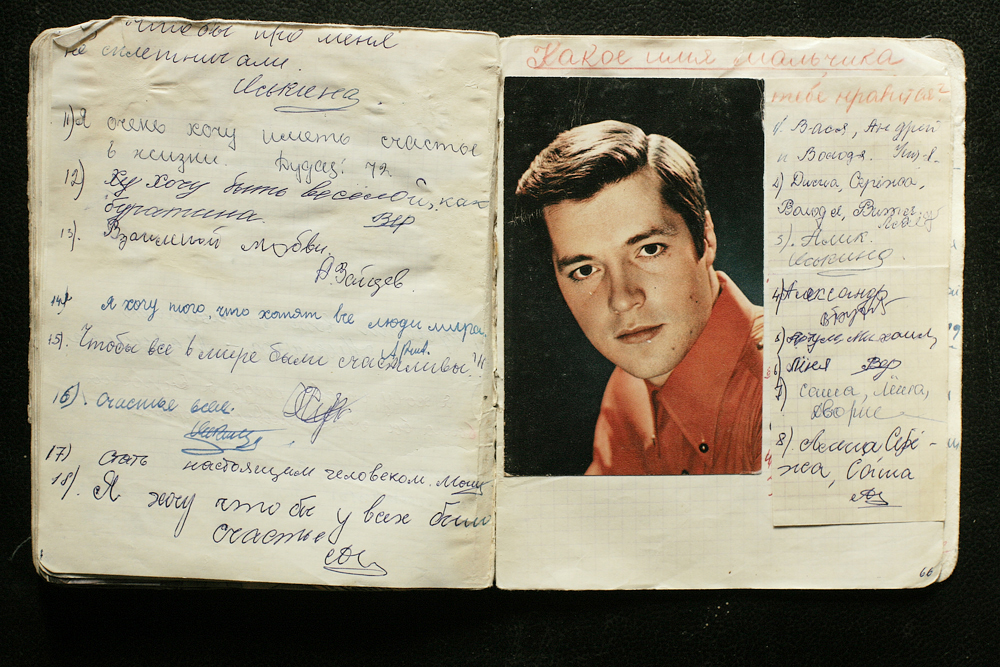 Чтобы про меня
не сплетничали.
Иськина
11) Я очень хочу иметь счастье
в жизни. 72
12) Ху хочу быть весёлой, как
буратина. Вер
13). Взаимной любви.
А. Зайцев.
14) Я хочу того, что хотят все люди мира.
15). Чтобы все в мире были счастливы!
16). Счастье всем.
17) стать настоящим человеком.
18). Я хочу чтобы у всех было
счастье
Какое имя мальчика
тебе нравится?
1. Вася, Андрей
и Володя.
2) Дима, Серёжа,
Володя, Витя,
3). Алик.
Иськина.
4) Александр
5) Михаил
6) Лёня Вер
7) Саша, Лёшка,
8) Серё-
жа, Саша
66